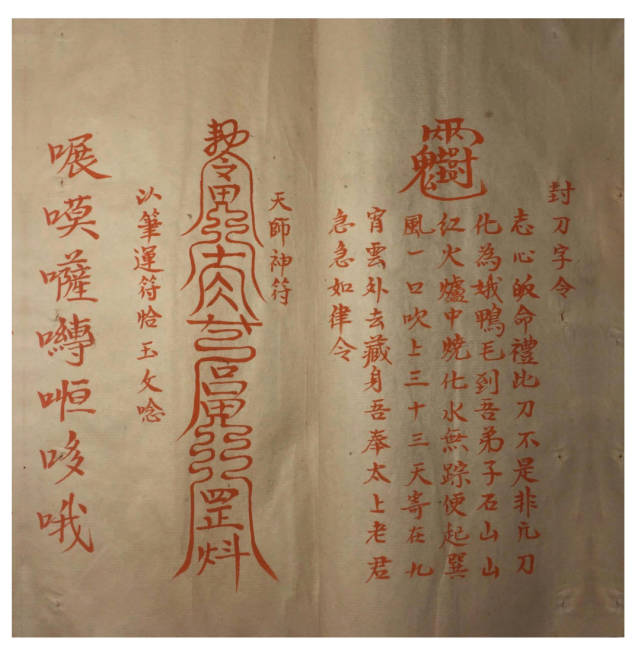 封刀字令
志心皈命禮此刀不是非凡刀
化為城鴨毛到吾弟子石山山
紅火爐中燒化水無踪便起巽
風一口吹上三十三天寄在九
霄雲外去藏身吾奉太上老君
急急如律令
天師神符
敕令
罡
以筆運符恰玉文唸
㗨嗼囄囀㖶哆哦